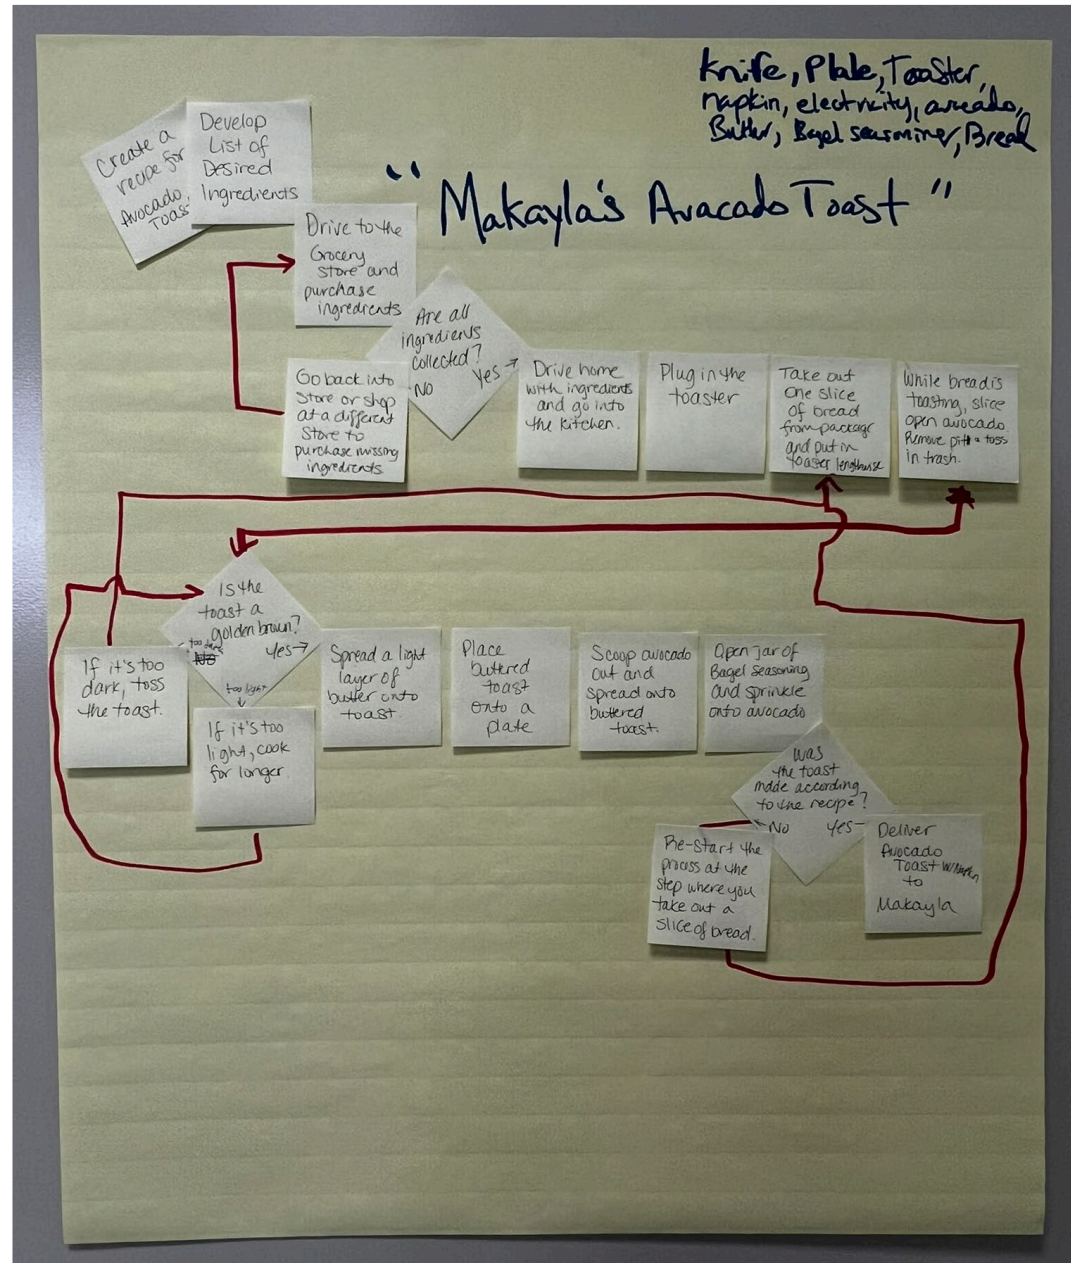 Knife, Plate, Toaster,
napkin, electricity, avacado,
Butter, Bagel seasoning, Bread
"Makayla's Avacado Toast"
Create a
recipe for
Avocado
Toast
Develop
List of
Desired
Ingredients
Drive to the
Grocery
store and
purchase
ingredients
Are all
ingredients
collected?
Yes →
NO
Go back into
Store or shop
at a different
Store to
purchase missing
ingredients
Drive home
with ingredients
and go into
the kitchen.
Plug in the
toaster
Take out
one slice
of bread
from package
and put in
toaster lengthwise
While bread is
toasting, slice
open avocado.
Remove pit & toss
in trash.
Is the
toast a
golden brown?
too dark
NO
Yes →
too light
↓
If it's too
dark, toss
the toast.
If it's too
light, cook
for longer.
Spread a light
layer of
butter onto
toast.
Place
buttered
toast
onto a
plate
Scoop avocado
out and
spread onto
buttered
toast.
Open jar of
Bagel seasoning
and sprinkle
onto avocado
Was
the toast
made according
to the recipe?
No
Yes
Re-start the
process at the
step where you
take out a
slice of bread.
Deliver
Avocado
Toast w/Napkin
to
Makayla